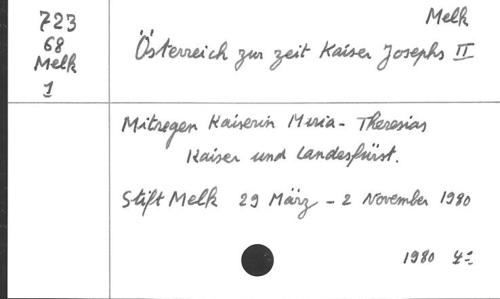 Melk
723
68
Melk
1
Österreich zur zeit Kaiser Josephs II
Mitregen Kaiserin Muria - Theresias
Kaiser und Landesfürst.
Stift Melk 29 März - 2 November 1980
1980